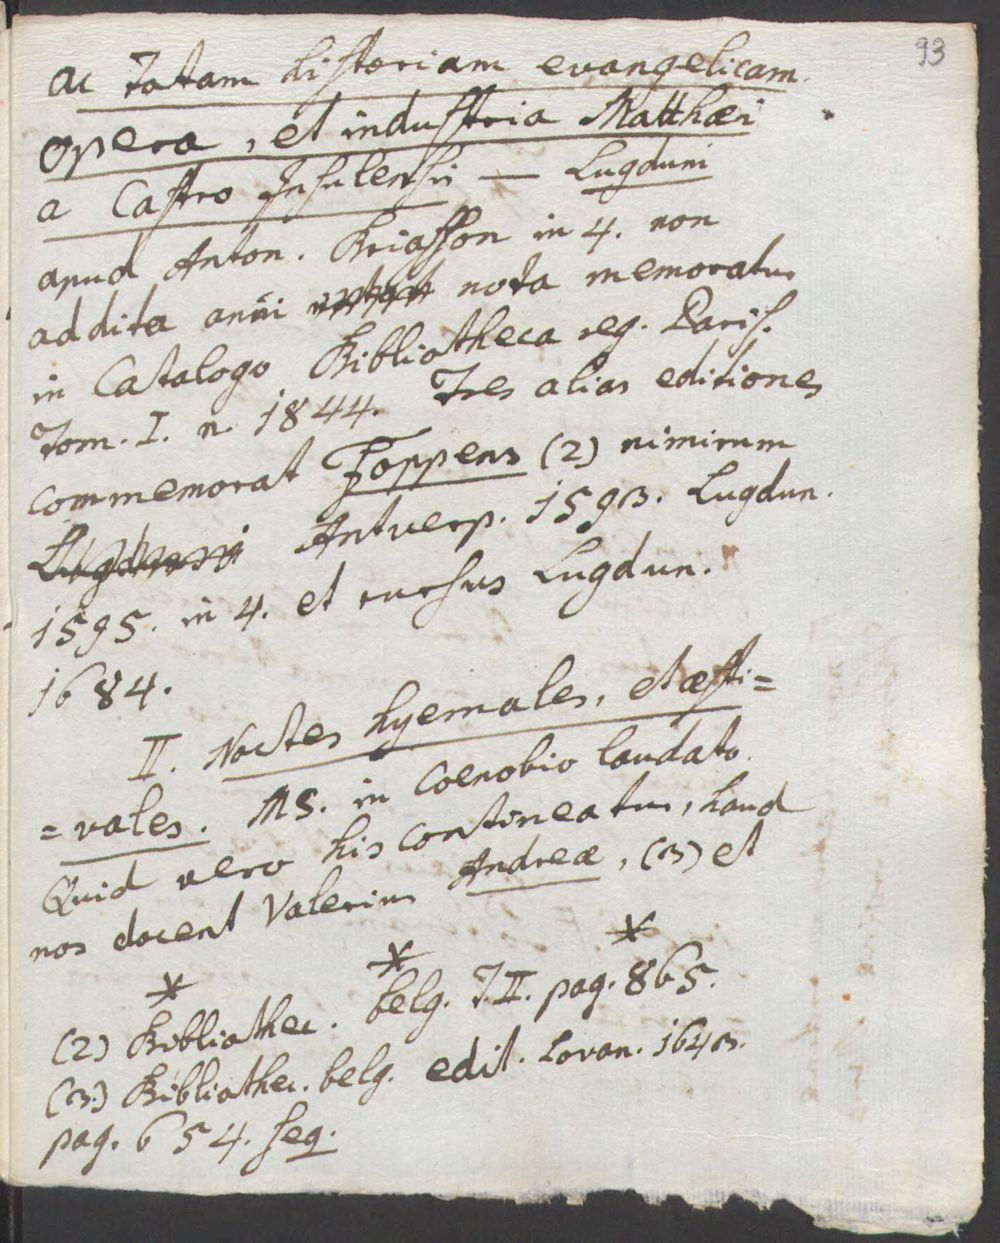 93
ac totam historiam evangelicam
opera, et industria Matthæi
a Castro Insulensii — Lugduni
apud Anton. Briasson in 4. non
addita anni nota memoratur
in Catalogo Bibliotheca reg. Paris.
Tom. I. n. 1844. Tres alias editiones
commemorat Foppens (2) nimirum
Lugduni Antverp. 1593. Lugdun.
1595. in 4. et rursus Lugdun.
1684.
II. Noctes hyemales, et æsti=
=vales. MS. in Coenobio laudato.
Quid vero his contineatur, haud
nos docent Valerius Andreæ, (3) et
* * *
(2) Bibliothec. belg. T.II. pag. 865.
(3.) Bibliothec. belg. edit. Lovan. 1643.
pag. 654. seq.